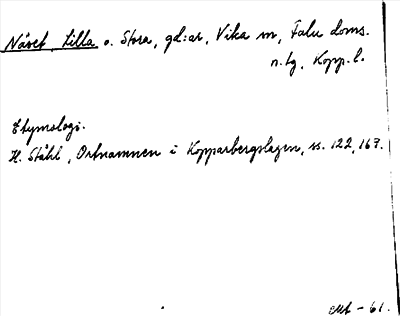 Näset, Lilla o. Stora, gd:ar, Vika sn, Falu doms.
n. tg, Kopp. l.
Etymologi.
H. Ståhl, Ortnamnen i Kopparbergslagen, ss. 122, 167.
- 61.